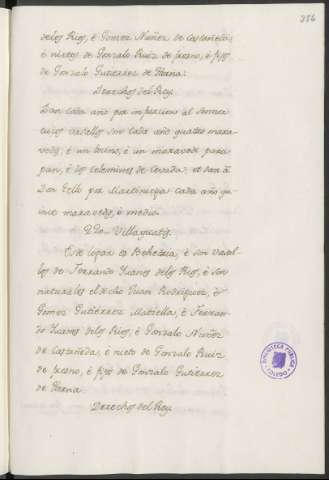 356
delos Rios, è Gomez Nuñez de Castañeda:
è nietos de Gonzalo Ruiz de fresno, è fijo
de Gonzalo Gutierrez de
Derechos del Rey
Dan cada año por al Señor
vasallos son cada año quatro mara-
vedis, è un tocino, è un maravedi para
pan, è dos celemines de Cevada: et dan à
Don Tello por Martiniega cada año qu-
ince maravedis, è medio.
Este logar es Behetria, è son vasal-
los de Ferrando Yuanes delos Rios, è son
naturales el dicho Juan Rodriguez, è
Gomez Gutierrez è Ferran-
do Yuanes delos Rios, è Gonzalo Nuñez
de Castañeda, è nieto de Gonzalo Ruiz
de fresno, è fijo de Gonzalo Gutierrez
de
Derechos del Rey
BIBLIOTECA PUBLICA
TOLEDO